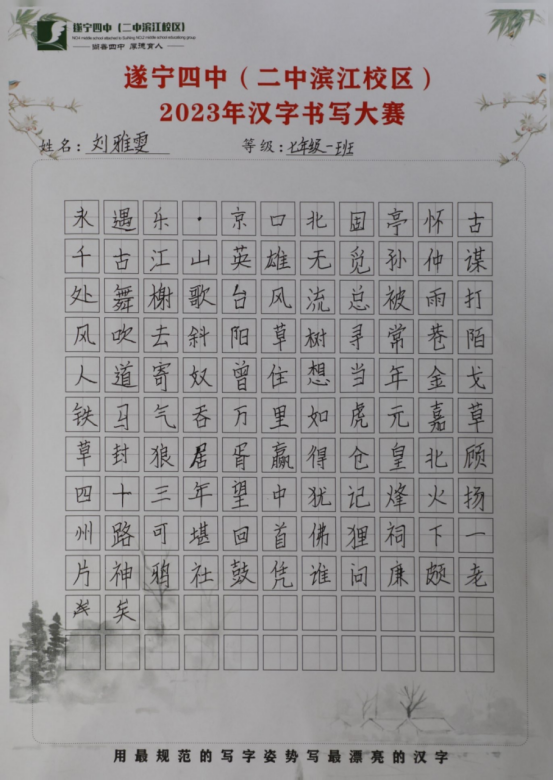 遂宁四中（二中滨江校区）
崇善四中 厚德育人
遂宁四中（二中滨江校区）
2023年汉字书写大赛
姓名：刘雅雯 等级：七年级一班
永遇乐·京口北固亭怀古
千古江山英雄无觅孙仲谋
处舞榭歌台风流总被雨打
风吹去斜阳草树寻常巷陌
人道寄奴曾住想当年金戈
铁马气吞万里如虎元嘉草
草封狼居胥赢得仓皇北顾
四十三年望中犹记烽火扬
州路可堪回首佛狸祠下一
片神鸦社鼓凭谁问廉颇老
矣
用最规范的写字姿势写最漂亮的汉字